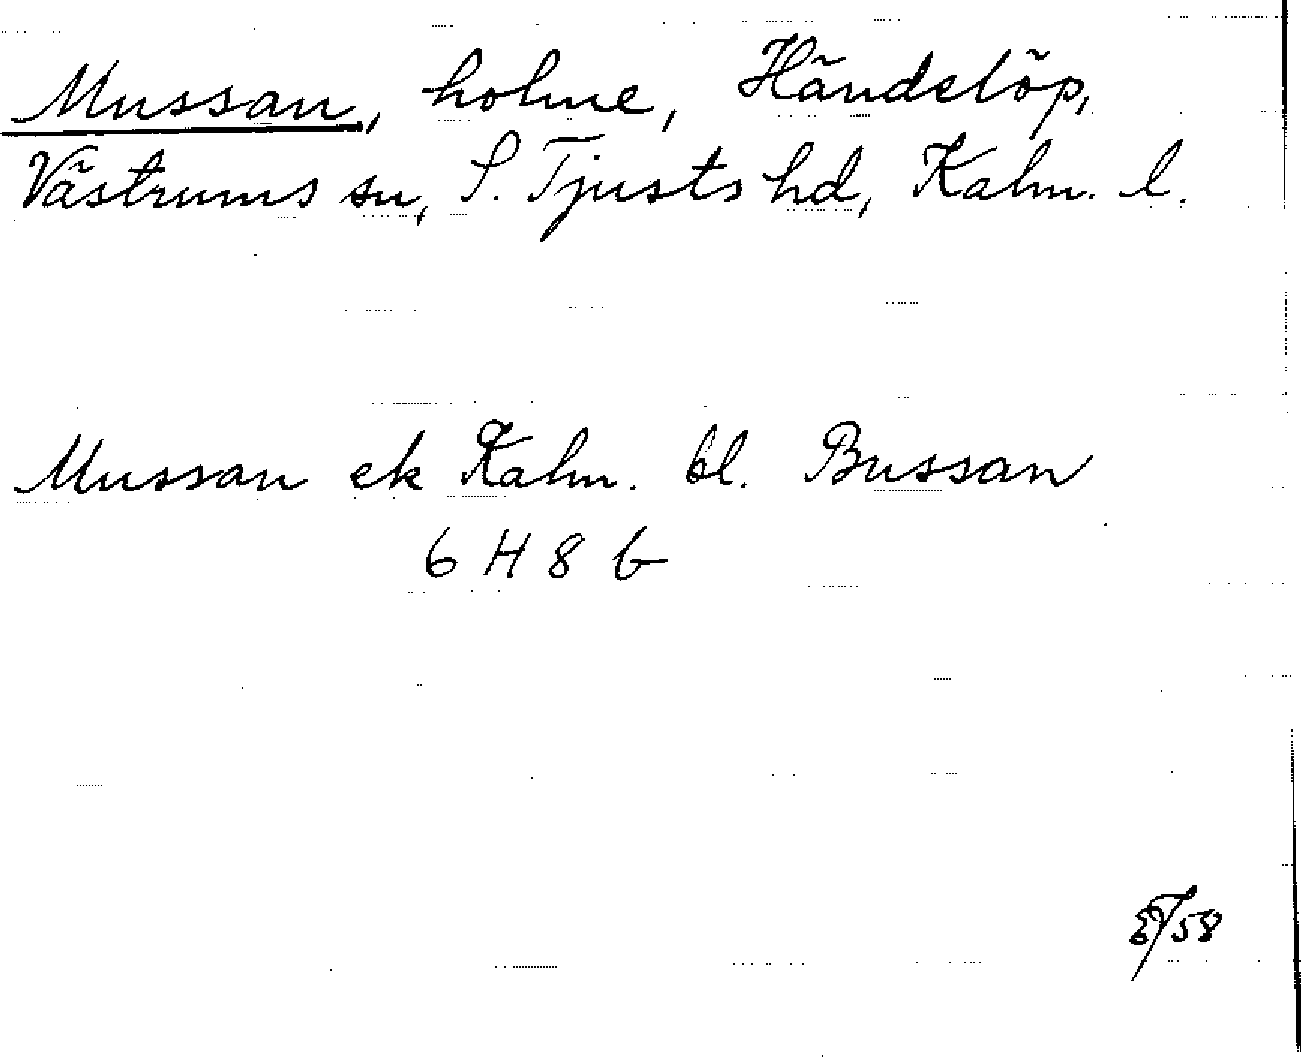 Mussan, holme, Händelöp,
Västrums sn, S. Tjusts hd, Kalm. l.
Mussan ek Kalm. bl. Bussan
6 H 8 b
/58